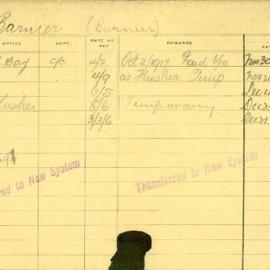 Barnier (Burnier)
OFFICE DEPT. RATE OF PAY REMARKS
Bay c/o 4/2 Oct 2/1917 Paid b/o Nov 30
4/9 as Flusher Temp Nov 2
5/5 Dec 4
Flusher 5/6 Temporary Dec 2
3/3/6 Dec 21
Transferred to New System
red to New System